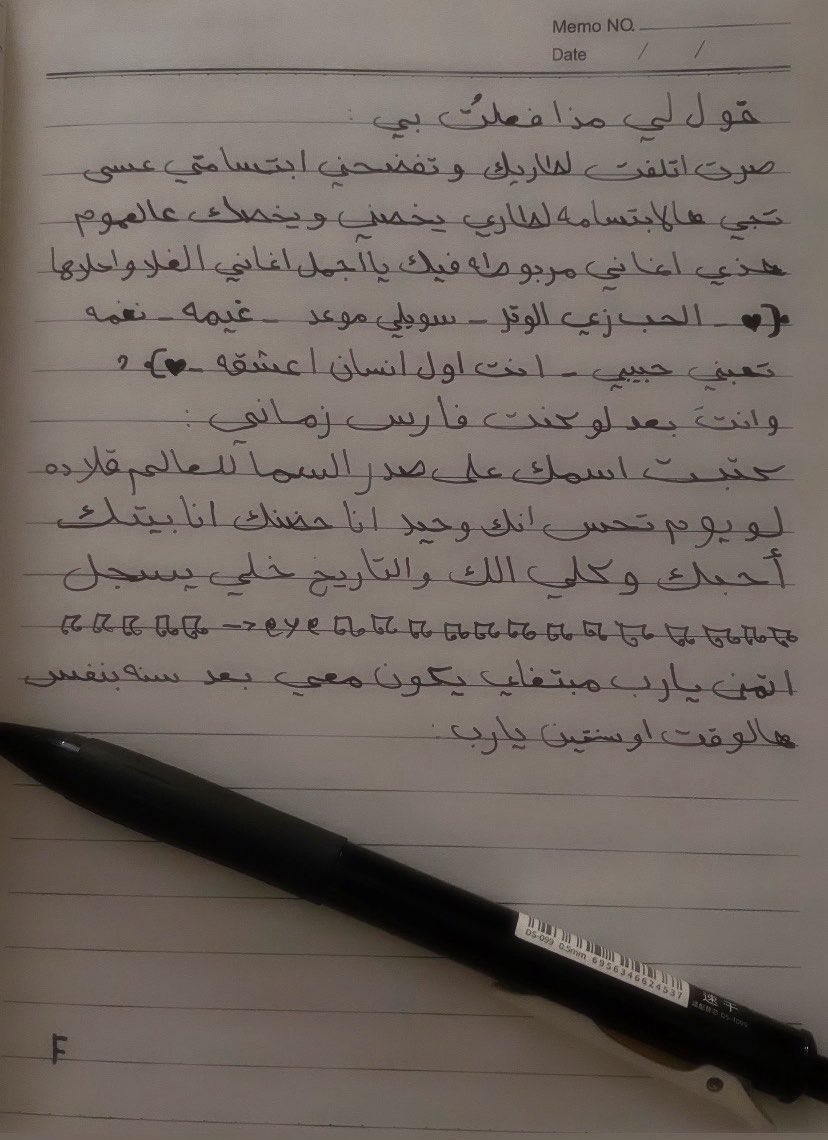 Memo NO.
Date / /
قول لي مذا فعلتُ بي :
صرت اتلفت لطاريك وتفضحني ابتسامتي عسى
تجي هالابتسامه لطاري يخصني ويخصك عالعموم
هذي اغاني مربوطه فيك ياأجمل اغاني الغلا واحلاها
{♥ - الحب زي الوتر - سويلي موعد - غيمه - نغمه
تعبني حبيبي - انت اول انسان اعشقه - ♥} ?
وانتَ بعد لو كنت فارس زماني :
كتبت اسمك على صدر السما للعالم قلاده
لو يوم تحس انك وحيد انا حضنك انا بيتك
أحبك وكلي الك والتاريخ خلي يسجل
eye <-
اتمنى يارب مبتغاي يكون معي بعد سنه بنفس
هالوقت اوسنتين يارب .
DS-099 0.5mm 6956346624537
速干
F